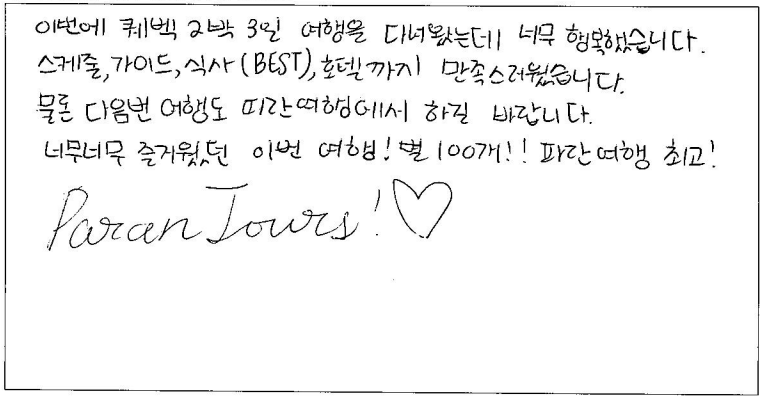 이번에 퀘벡 2박 3일 여행을 다녀왔는데 너무 행복했습니다.
스케줄,가이드,식사(BEST),호텔까지 만족스러웠습니다.
물론 다음번 여행도 파란여행에서 하길 바랍니다.
너무너무 즐거웠던 이번 여행! 별 100개!! 파란여행 최고!
Paran Tours! ♡